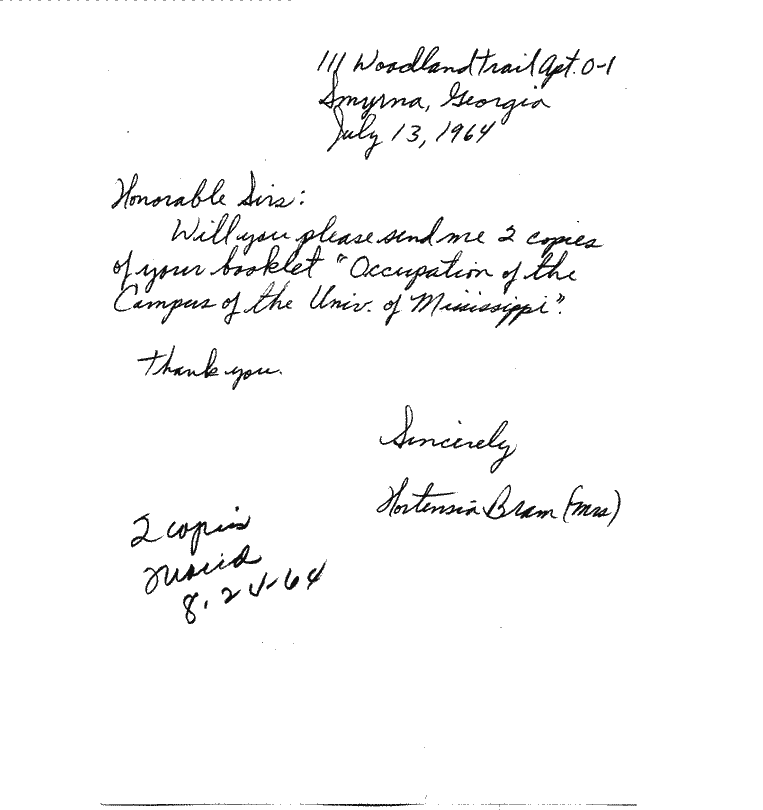 111 Woodland Trail Apt. O-1
Smyrna, Georgia
July 13, 1964
Honorable Sirs:
Will you please send me 2 copies
of your booklet "Occupation of the
Campus of the Univ. of Mississippi".
Thank you.
Sincerely
Hortensia Bram (Mrs)
2 copies
8-24-64